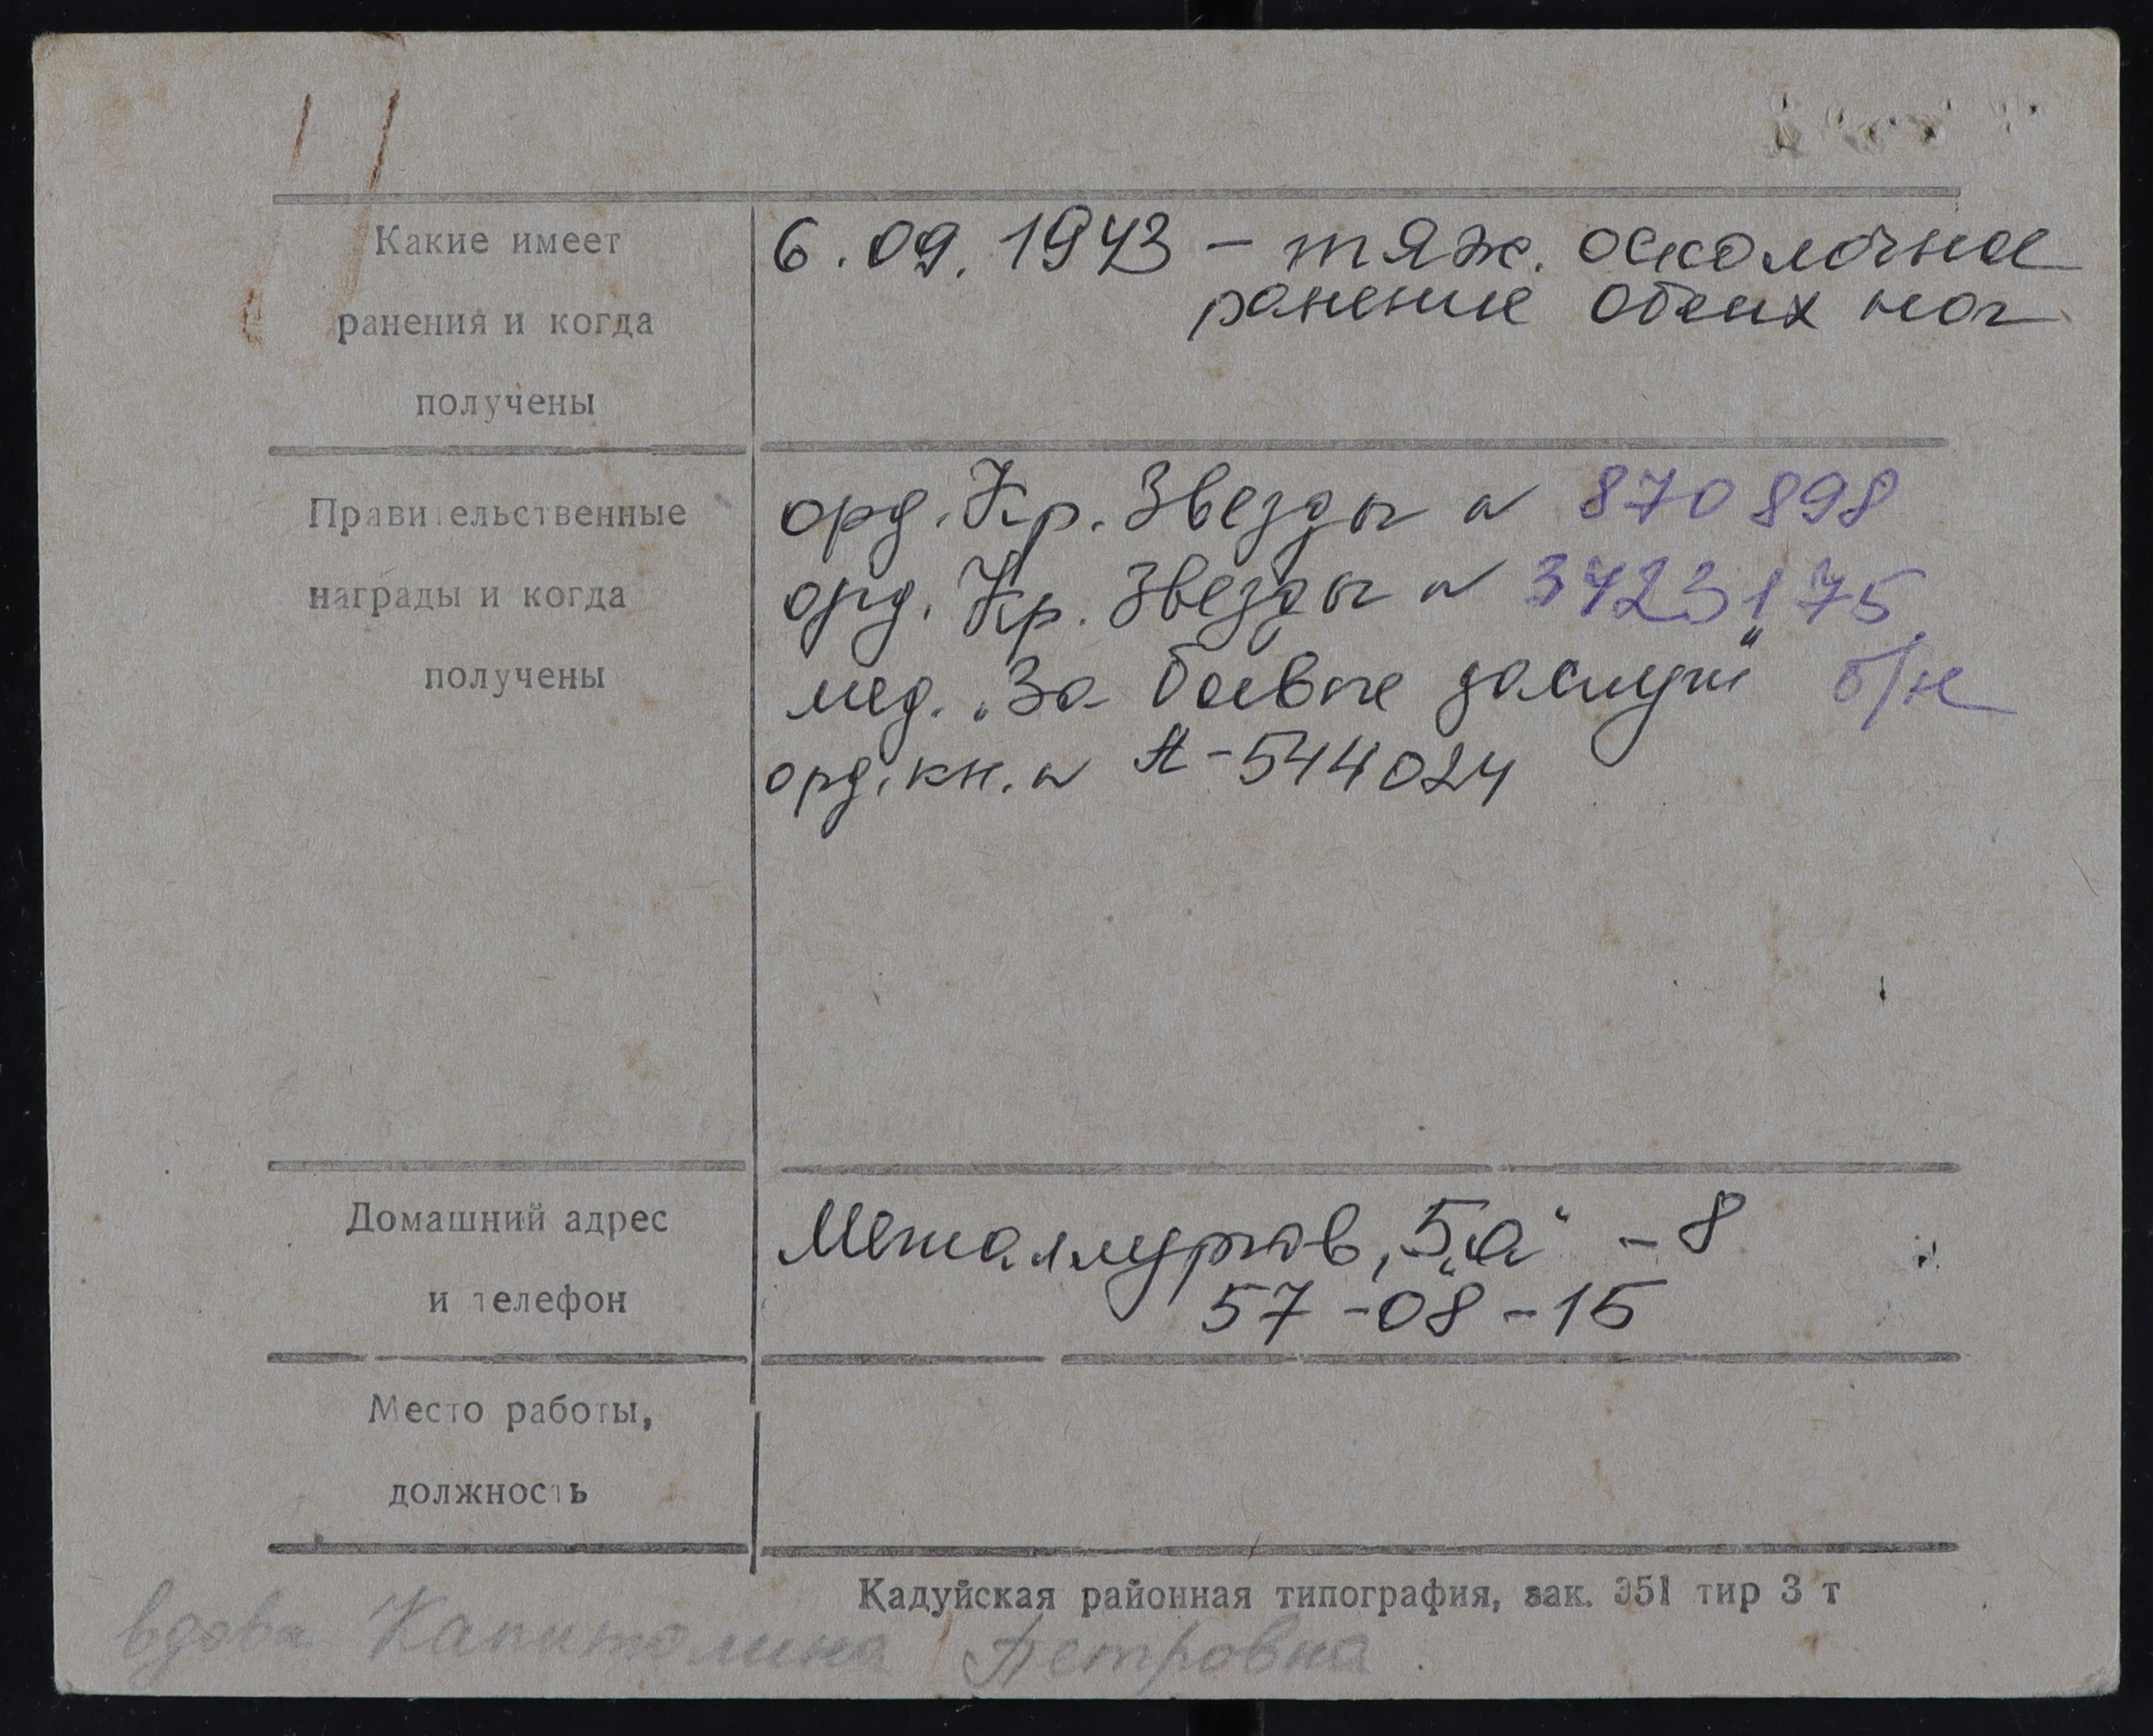 Какие имеет
ранения и когда
получены
6.09.1943 - тяж. осколочное
ранение обеих ног
Правительственные
награды и когда
получены
орд. Кр. Звезды № 870898
орд. Кр. Звезды № 3423175
мед. „За боевые заслуги" б/н
орд. кн. № А-544024
Домашний адрес
и телефон
Металлургов, 5„а" - 8
57-08-15
Место работы,
должность
Кадуйская районная типография, зак. 351 тир 3 т
вдова Капитолина Петровна